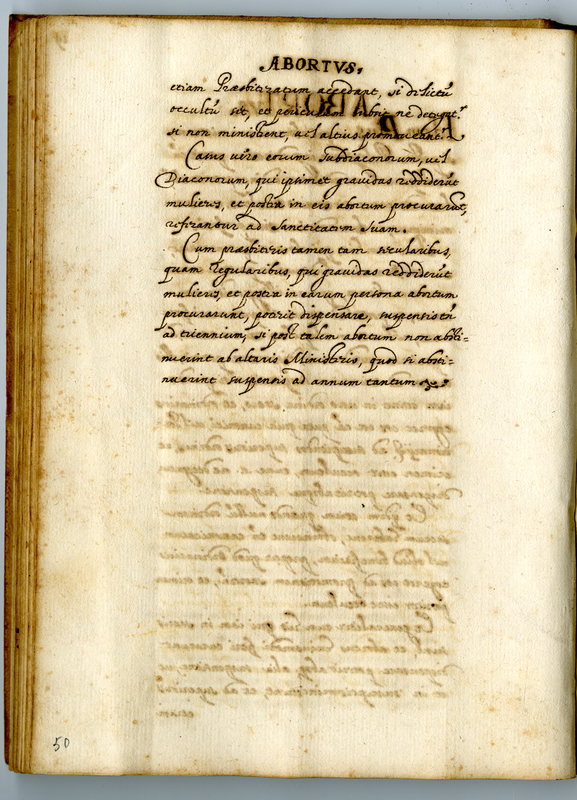 ABORTVS,
etiam Præsbiteratum accedant, si delictū
occultū sit, et periculum ne detegat.
si non ministrent, vel altius promoveant.
Casus vero eorum Subdiaconorum, vel
Diaconorum, qui ipsimet gravidas reddiderūt
mulieres, et postea in eis abortum procurarūt,
referantur ad Sanctitatem Suam.
Cum præsbiteris tamen tam secularibus,
quam regularibus, qui gravidas reddiderūt
mulieres, et postea in earum persona abortum
procurarunt, poterit dispensare, suspensis tn̄
ad triennium, si post talem abortum non absti=
nuerint ab altaris Ministeris, quod si absti=
nuerint suspensis ad annum tantum &c.
50